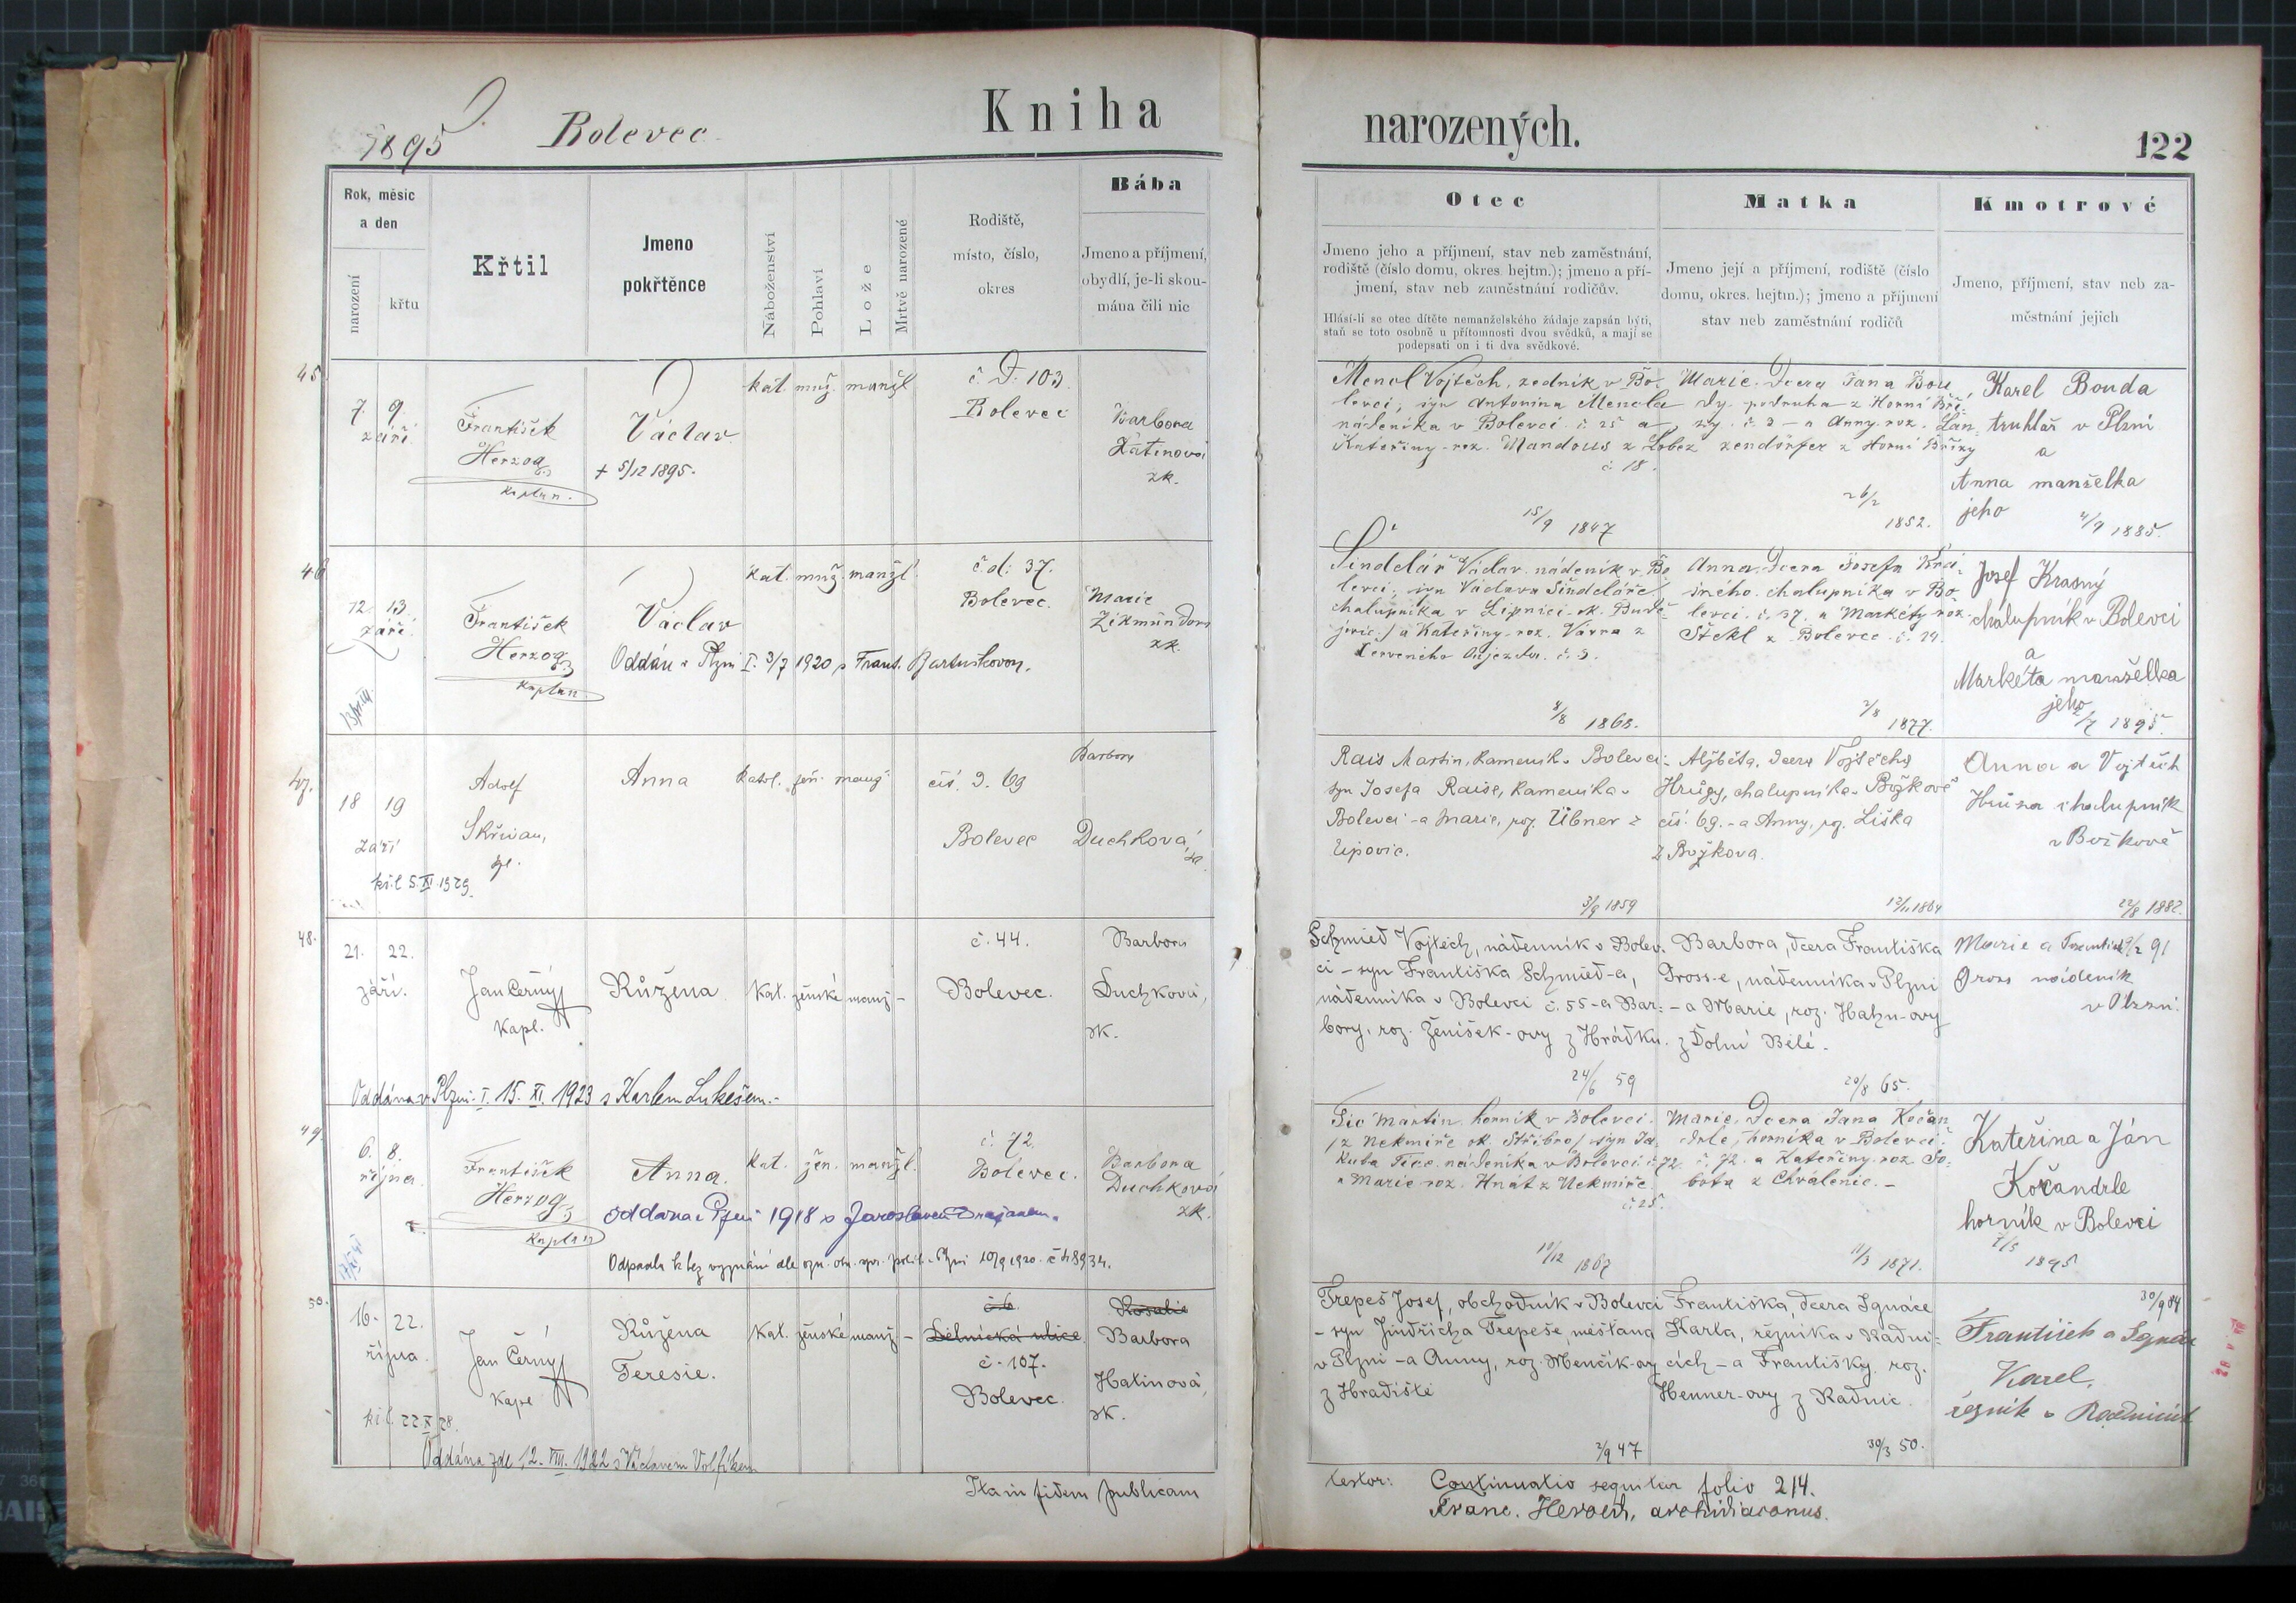 1895
Bolevec
Kniha
narozených.
122
Rok, měsíc
a den
narození
křtu
Křtil
Jmeno
pokřtěnce
Náboženství
Pohlaví
Lože
Mrtvě narozené
Rodiště,
místo, číslo,
okres
Bába
Jmeno a příjmení,
obydlí, je-li skou-
mána čili nic
Otec
Jmeno jeho a příjmení, stav neb zaměstnání,
rodiště (číslo domu, okres. hejtm.); jmeno a pří-
jmení, stav neb zaměstnání rodičův.
Hlásí-li se otec dítěte nemanželského žádaje zapsán býti,
staň se toto osobně u přítomnosti dvou svědků, a mají se
podepsati on i ti dva svědkové.
Matka
Jmeno její a příjmení, rodiště (číslo
domu, okres. hejtm.); jmeno a příjmení
stav neb zaměstnání rodičů
Kmotrové
Jmeno, příjmení, stav neb za-
městnání jejich
45
7. 9.
září
František
Herzog
Kaplan
Václav
+ 5/12 1895.
kat. muž. manžl.
č. D. 103.
Bolevec
Barbora
zk.
Mencl Vojtěch, zedník v Bo-
levci, syn Antonína Mencla
nádeníka v Bolevci č. 25 a
Kateřiny roz. Mandous z Lobez
č. 18.
15/9 1847
Marie, Dcera Jana Bou
dy, podruha z Horní Bří-
zy č. 2 - a Anny roz. Lan-
zendörfer z Horní Břízy
26/2
1852.
Karel Bouda
truhlář v Plzni
a
Anna manželka
jeho
4/9 1885.
46
12. 13.
září
František
Herzog
Kaplan
Václav
Oddán v Plzni I. 3/7 1920 s Frant. Bartuškovou.
kat. muž. manžl.
č. d. 37.
Bolevec.
Marie
zk.
Šindelář Václav, nádeník v Bo
levci, syn Václava Šindeláře
chalupníka v Lipnici ok. Budě-
jovic / a Kateřiny roz. Vávra z
Červeného Oujezda. č. 3.
8/8 1868.
Anna, Dcera Josefa Krá-
sného, chalupníka v Bo-
levci. č. 37. a Markéty roz.
Štekl z Bolevce č. 14.
2/8
1877.
Josef Krasný
chalupník v Bolevci
a
Markéta manželka
jeho
2/7 1895.
47.
18 19
září
kř. l. 5. XI. 1929.
Adolf
Anna
katol. žen. manž.
čís. d. 69
Bolevec
Barbora
Duchková
Rais Martin, kameník v Bolevci
syn Josefa Raise, kameníka v
Bolevci - a Marie, roz. Übner z
Lipovic.
3/9 1859
Alžběta, dcera Vojtěcha
Hrůzy, chalupníka v Božkově
čís. 69. - a Anny, roz. Liška
z Božkova.
12/11 1864
Anna a Vojtěch
Hrůza chalupník
v Božkově
22/8 1882.
48.
21. 22.
září.
Jan Černý
kapl.
Růžena
kat. ženské manž. -
č. 44.
Bolevec.
Barbora
Duchková,
zk.
Oddána v Plzni I. 15. XI. 1923 s Karlem Lukešem.-
Schmied Vojtěch, nádenník v Bolev-
ci - syn Františka Schmied-a,
nádenníka v Bolevci č. 55 - a Bar-
bory, roz. Ženíšek-ovy z Hrádku.
24/6 59
Barbora, dcera Františka
Gross-e, nádenníka v Plzni
- a Marie, roz. Hahn-ovy
z Dolní Bělé.
20/8 65.
Marie a František 9/2 91
Gross nádeník
v Plzni.
49.
6. 8.
října
František
Herzog
Kaplan
Anna.
Oddána v Plzni 1918 s Jaroslavem
kat. žen. manžl.
č. 72.
Bolevec.
Barbora
Duchková
zk.
Odpadla k bez vyznání dle ozn. okr. spr. polit. v Plzni 10/9 1920. č.
Martin horník v Bolevci.
/ z Nekmíře ok. Stříbro / syn Ja-
kuba nádeníka v Bolevci č. 72
a Marie roz. Hnát z Nekmíře.
č. 25.
10/12 1867
Marie, Dcera Jana Kočan
drle, horníka v Bolevci
č. 72. a Kateřiny roz. So-
bota z Chválenic. -
11/3 1871.
Kateřina a Ján
Kočandrle
horník v Bolevci
1895
50.
16. 22.
října.
kř. l. 22 X 28.
Jan Černý
kapl
Růžena
Teresie.
Kat. ženské manž. -
č 6
Dělnická ulice
č. 107.
Bolevec.
Rosalie
Barbora
Hatinová,
zk.
Oddána zde 12. VIII. 1922 s Václavem Volfíkem
Trepeš Josef, obchodník v Bolevci
- syn Jindřicha Trepeše, měšťana
v Plzni - a Anny, roz. Menčík-ovy
z Hradiště
2/9 47
Františka, dcera Ignáce
Karla, řezníka v Radni-
cích - a Františky roz.
Henner-ovy z Radnic.
30/3 50.
30/9 84
František a Ignác
Karel,
řezník v Radnicích
Ita in fidem publicam
testor:
Continuatio sequitur folio 214.
Franc. Herold, archidiaconus.